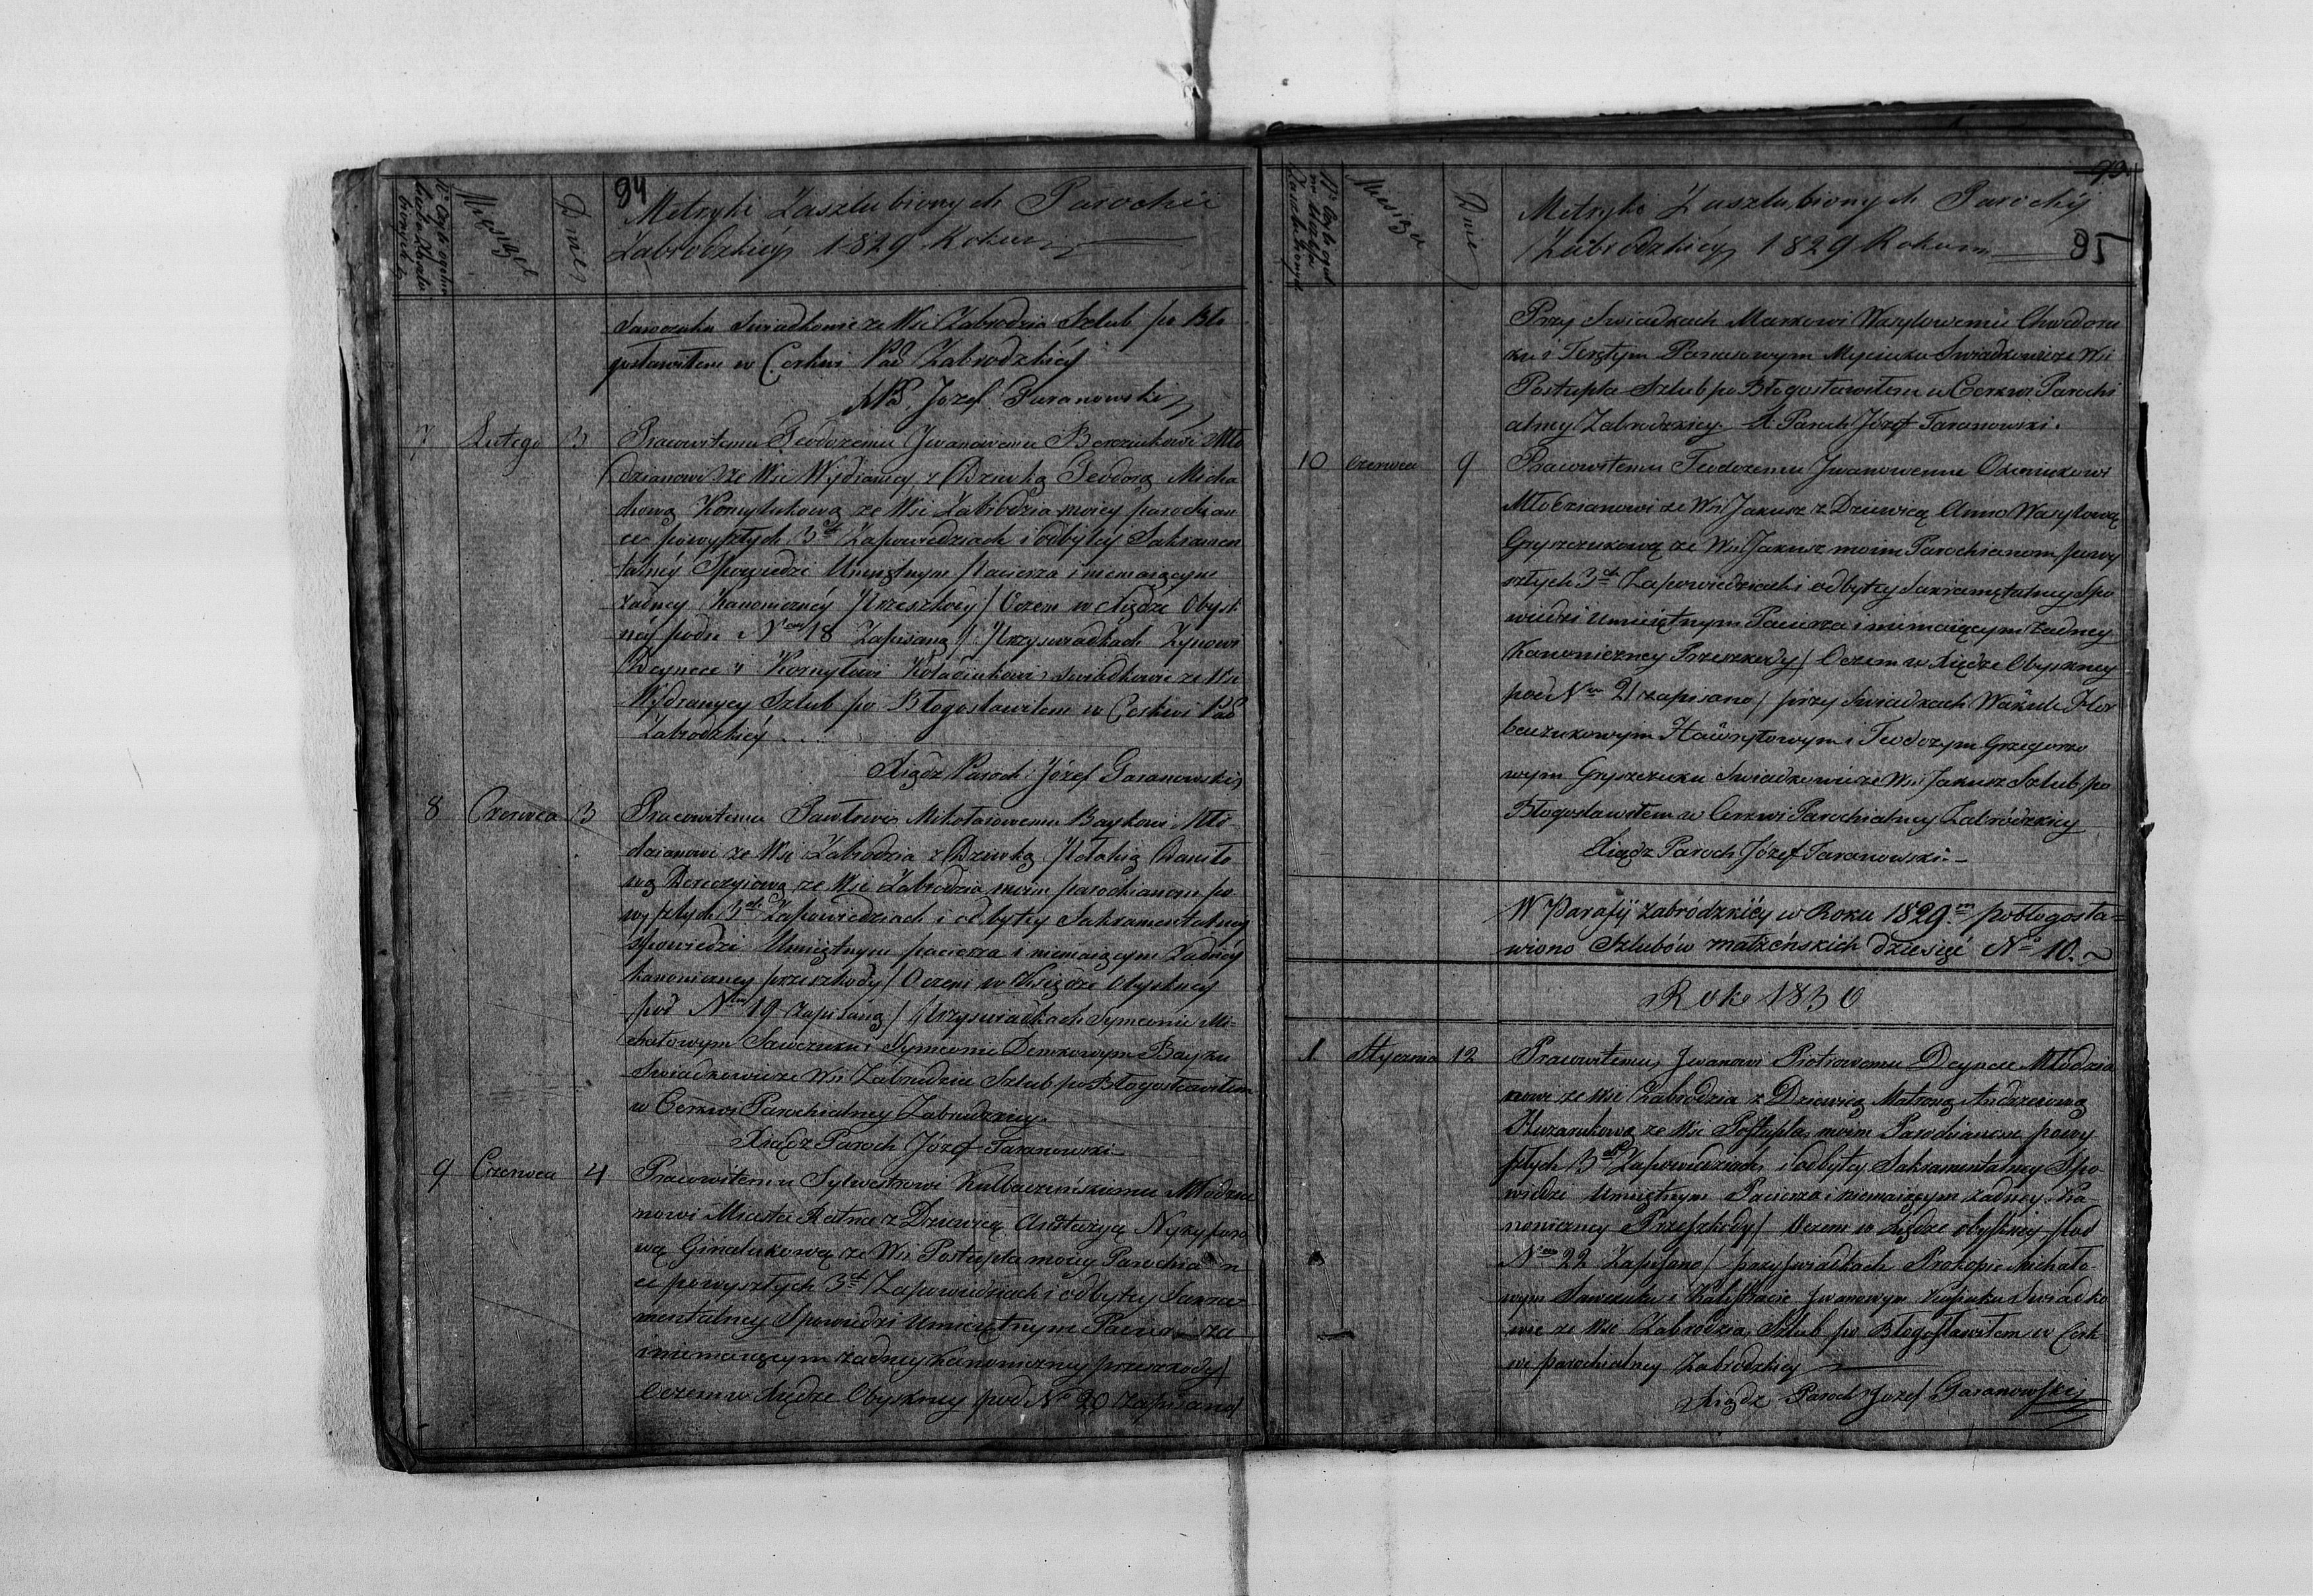 94
Nr Cząstkowy
Miesiąc
Dnie
Metryki Zaszlubionych Parochii
Zabrodzkiéy 1829 Roku
Sawczuku Swiadkowie ze Wsi Zabrodzia Szlub po Bło
gosławiłem w Cerkwi Par Zabrodzkiéy
XPar Jozef Taranowski
7 Lutego 3 Pracowitemu Teodozemu Jwanowemu Mło
dzianowi ze Wsi Wydranicy z Dziewką Teodorą Micha
łową ze Wsi Zabrodzia moiey parochian
ce powyszłych 3ch Zapowiedziach i odbytey Sakramen
talnéy Spowiedzi Umieętnym Pacierza i niemaiącym
żadney Kanonicznéy Przeszkody / Oczem w Xiędze Obysk
néy pod Nrem 18 Zapisaną / Przy swiadkach
Deynece i Kornyłowi swiadkowie ze Wsi
Wydranycy Szlub po Błogosławiłem w Cerkwi Par
Zabrodzkiéy
Xiądz Paroch Józef Taranowski
8 Czerwca 3 Pracowitemu Pawłowi Mikołaiowemu Baykowi Mło
dzianowi ze Wsi Zabrodzia z Dziewką Danilo
wą ze Wsi Zabrodzia moim parochianom po
wyszłych 3ch Zapowiedziach i odbytey Sakramentalney
Spowiedzi Umieętnym pacierza i niemaiącym żadnéy
kanoniczney przeszkody / Oczem w Xiędze Obyskney
pod Nrem 19 zapisaną / Przy swiadkach Symeonie Mi=
chałowym Sawczuku i Symeonie Demkowym Bayku
Swiadkowie ze Wsi Zabrodzia Szlub po Błogosławiłem
w Cerkwi Parochialney Zabrodzkiey
Xiądz Paroch Józef Taranowski
9 Czerwca 4 Pracowitemu Sylwestrowi Kulbaczyńskiemu Młodzia
nowi Miasta Ratna z Dziewicą Anstazyą Nykyporo
wą ze Wsi Postupla moiey Parochian
ce powyszłych 3ch Zapowiedziach i odbytey Sakra
mentalney Spowiedzi Umieiętnym Pacierza
i niemaiącym żadney kanoniczney przeszkody /
Oczem w Xiędze Obyskney pod No 20 Zapisano /
93
Miesiąc
Dnie
Metryki Zaszlubionych Parochij
Zabrodzkiéy 1829 Roku 95
Przy Swiadkach Markowi Wasylowemu Chwedoru
ku i Panasowym Swiadkowie ze Wsi
Postupla Szlub po Błogosławiłem w Cerkwi Parochi
alney Zabrodzkiey X Paroch Józef Taranowski
10 Czerwca 9 Pracowitemu Teodozemu Jwanowemu
Młodzianowi ze Wsi Jakusz z Dziewicą Anno Wasylową
Gryszczukową ze Wsi Jakusz moim Parochianom powy
szłych 3ch Zapowiedziach i odbytey Sakramętalney Spo
wiedzi umieiętnym Pacierza i niemaiącym żadney
Kanoniczney Przeszkody / Oczem w Xiędze Obyskney
pod Nrem 21 zapisano / przy Swiadkach
Hawryłowym i Teodozym Grzegorzo
wym Gryszczuku Swiadkowie ze Wsi Jakusz Szlub po
Błogosławiłem w Cerkwi Parochialney Zabródzkiey
Xiądz Paroch Józef Taranowski
W Parafij Zabródzkiéy w Roku 1829m pobłogosła=
wiono Szlubów małżeńskich dziesięć No 10.
Roku 1830
1 Stycznia 12 Pracowitemu Jwanowi Piotrowemu Deynece Młodzia
nowi ze Wsi Zabrodzia z Dziewicą Matroną Andrzeiową
ze Wsi Postupla moim Parochianom powy
szłych 3ch Zapowiedziach i odbytey Sakramentalney Spo
wiedzi Umieętnym Pacierza i niemaiącym żadney Ka
noniczney Przeszkody / Oczem w Xiędze obyskney pod
Nrem 22 Zapisano / przy swiadkach Prokopie Michało
wym Sawczuku i Kalistracie Jwanowym Swiadko
wie ze Wsi Zabrodzia Szlub po Błogosławiłem w Cerk
wi parochialney Zabrodzkiey
Xiądz Paroch Jozef Taranowskij